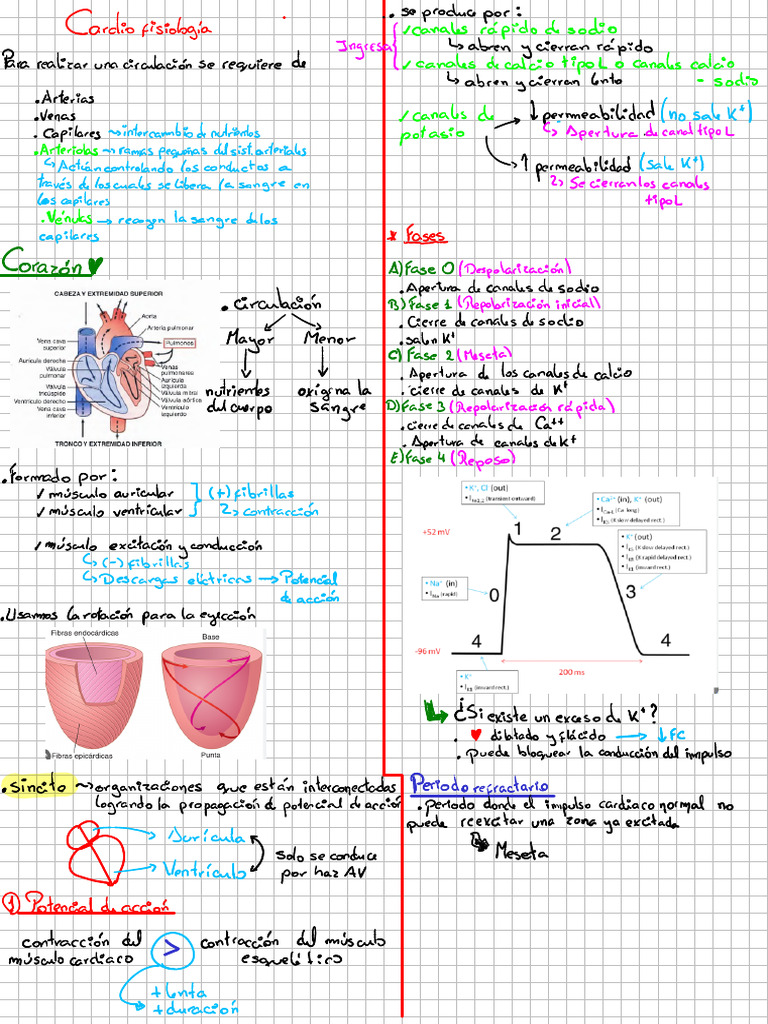 Cardiofisiología
Para realizar una circulación se requiere de
. Arterias
. Venas
. Capilares → intercambio de nutrientes
. Arteriolas → ramas pequeñas del sist. arteriales
↳ Actúan controlando los conductos a
través de los cuales se libera la sangre en
los capilares
. Vénulas → recogen la sangre de los
capilares
Corazón
CABEZA Y EXTREMIDAD SUPERIOR
Aorta
Arteria pulmonar
Vena cava
superior
Pulmones
Aurícula derecha
Válvula
pulmonar
Válvula
tricúspide
Ventrículo derecho
Vena cava
inferior
Venas
pulmonares
Aurícula
izquierda
Válvula mitral
Válvula aórtica
Ventrículo
izquierdo
TRONCO Y EXTREMIDAD INFERIOR
. circulación
Mayor Menor
nutrientes
del cuerpo
oxigena la
sangre
. Formado por:
✓ músculo auricular
✓ músculo ventricular
(+) fibrillas
↳ contracción
✓ músculo excitación y conducción
↳ (-) fibrillas
↳ Descargas eléctricas → Potencial
de acción
. Usamos la rotación para la eyección
Fibras endocárdicas
Fibras epicárdicas
Base
Punta
. Sincito → organizaciones que están interconectadas
logrando la propagación de potencial de acción
→ Aurícula
→ Ventrículo
solo se conduce
por haz AV
① Potencial de acción
contracción del
músculo cardiaco
>
contracción del músculo
esquelético
+ lenta
+ duración
. se produce por:
Ingresa
✓ canales rápido de sodio
↳ abren y cierran rápido
✓ canales de calcio tipo L o canales calcio
- sodio
↳ abren y cierran lento
✓ canales de
potasio
↓ permeabilidad (no sale K⁺)
↳ Apertura de canal tipo L
↑ permeabilidad (sale K⁺)
↳ Se cierran los canales
tipo L
* Fases
A) Fase 0 (Despolarización)
. Apertura de canales de sodio
B) Fase 1 (Repolarización inicial)
. Cierre de canales de sodio
. salen K⁺
C) Fase 2 (Meseta)
. Apertura de los canales de calcio
. cierre de canales de K⁺
D) Fase 3 (Repolarización rápida)
. cierre de canales de Ca⁺⁺
. Apertura de canales de K⁺
E) Fase 4 (Reposo)
• K⁺, Cl (out)
(transient outward)
• Ca²⁺ (in), K⁺ (out)
• I Ca-L (Ca long)
• I Ks (K slow delayed rect.)
• K⁺ (out)
• I Ks (K slow delayed rect.)
• I KR (K rapid delayed rect.)
• I K1 (inward rect.)
+52 mV
1
2
• Na⁺ (in)
• I Na (rapid)
0
3
-96 mV
4
4
200 ms
• K⁺
• I K1 (inward rect.)
¿Si existe un exceso de K⁺?
. ♥ dilatado y flácido → ↓FC
. puede bloquear la conducción del impulso
Periodo refractario
. Periodo donde el impulso cardiaco normal no
puede reexcitar una zona ya excitada
Meseta